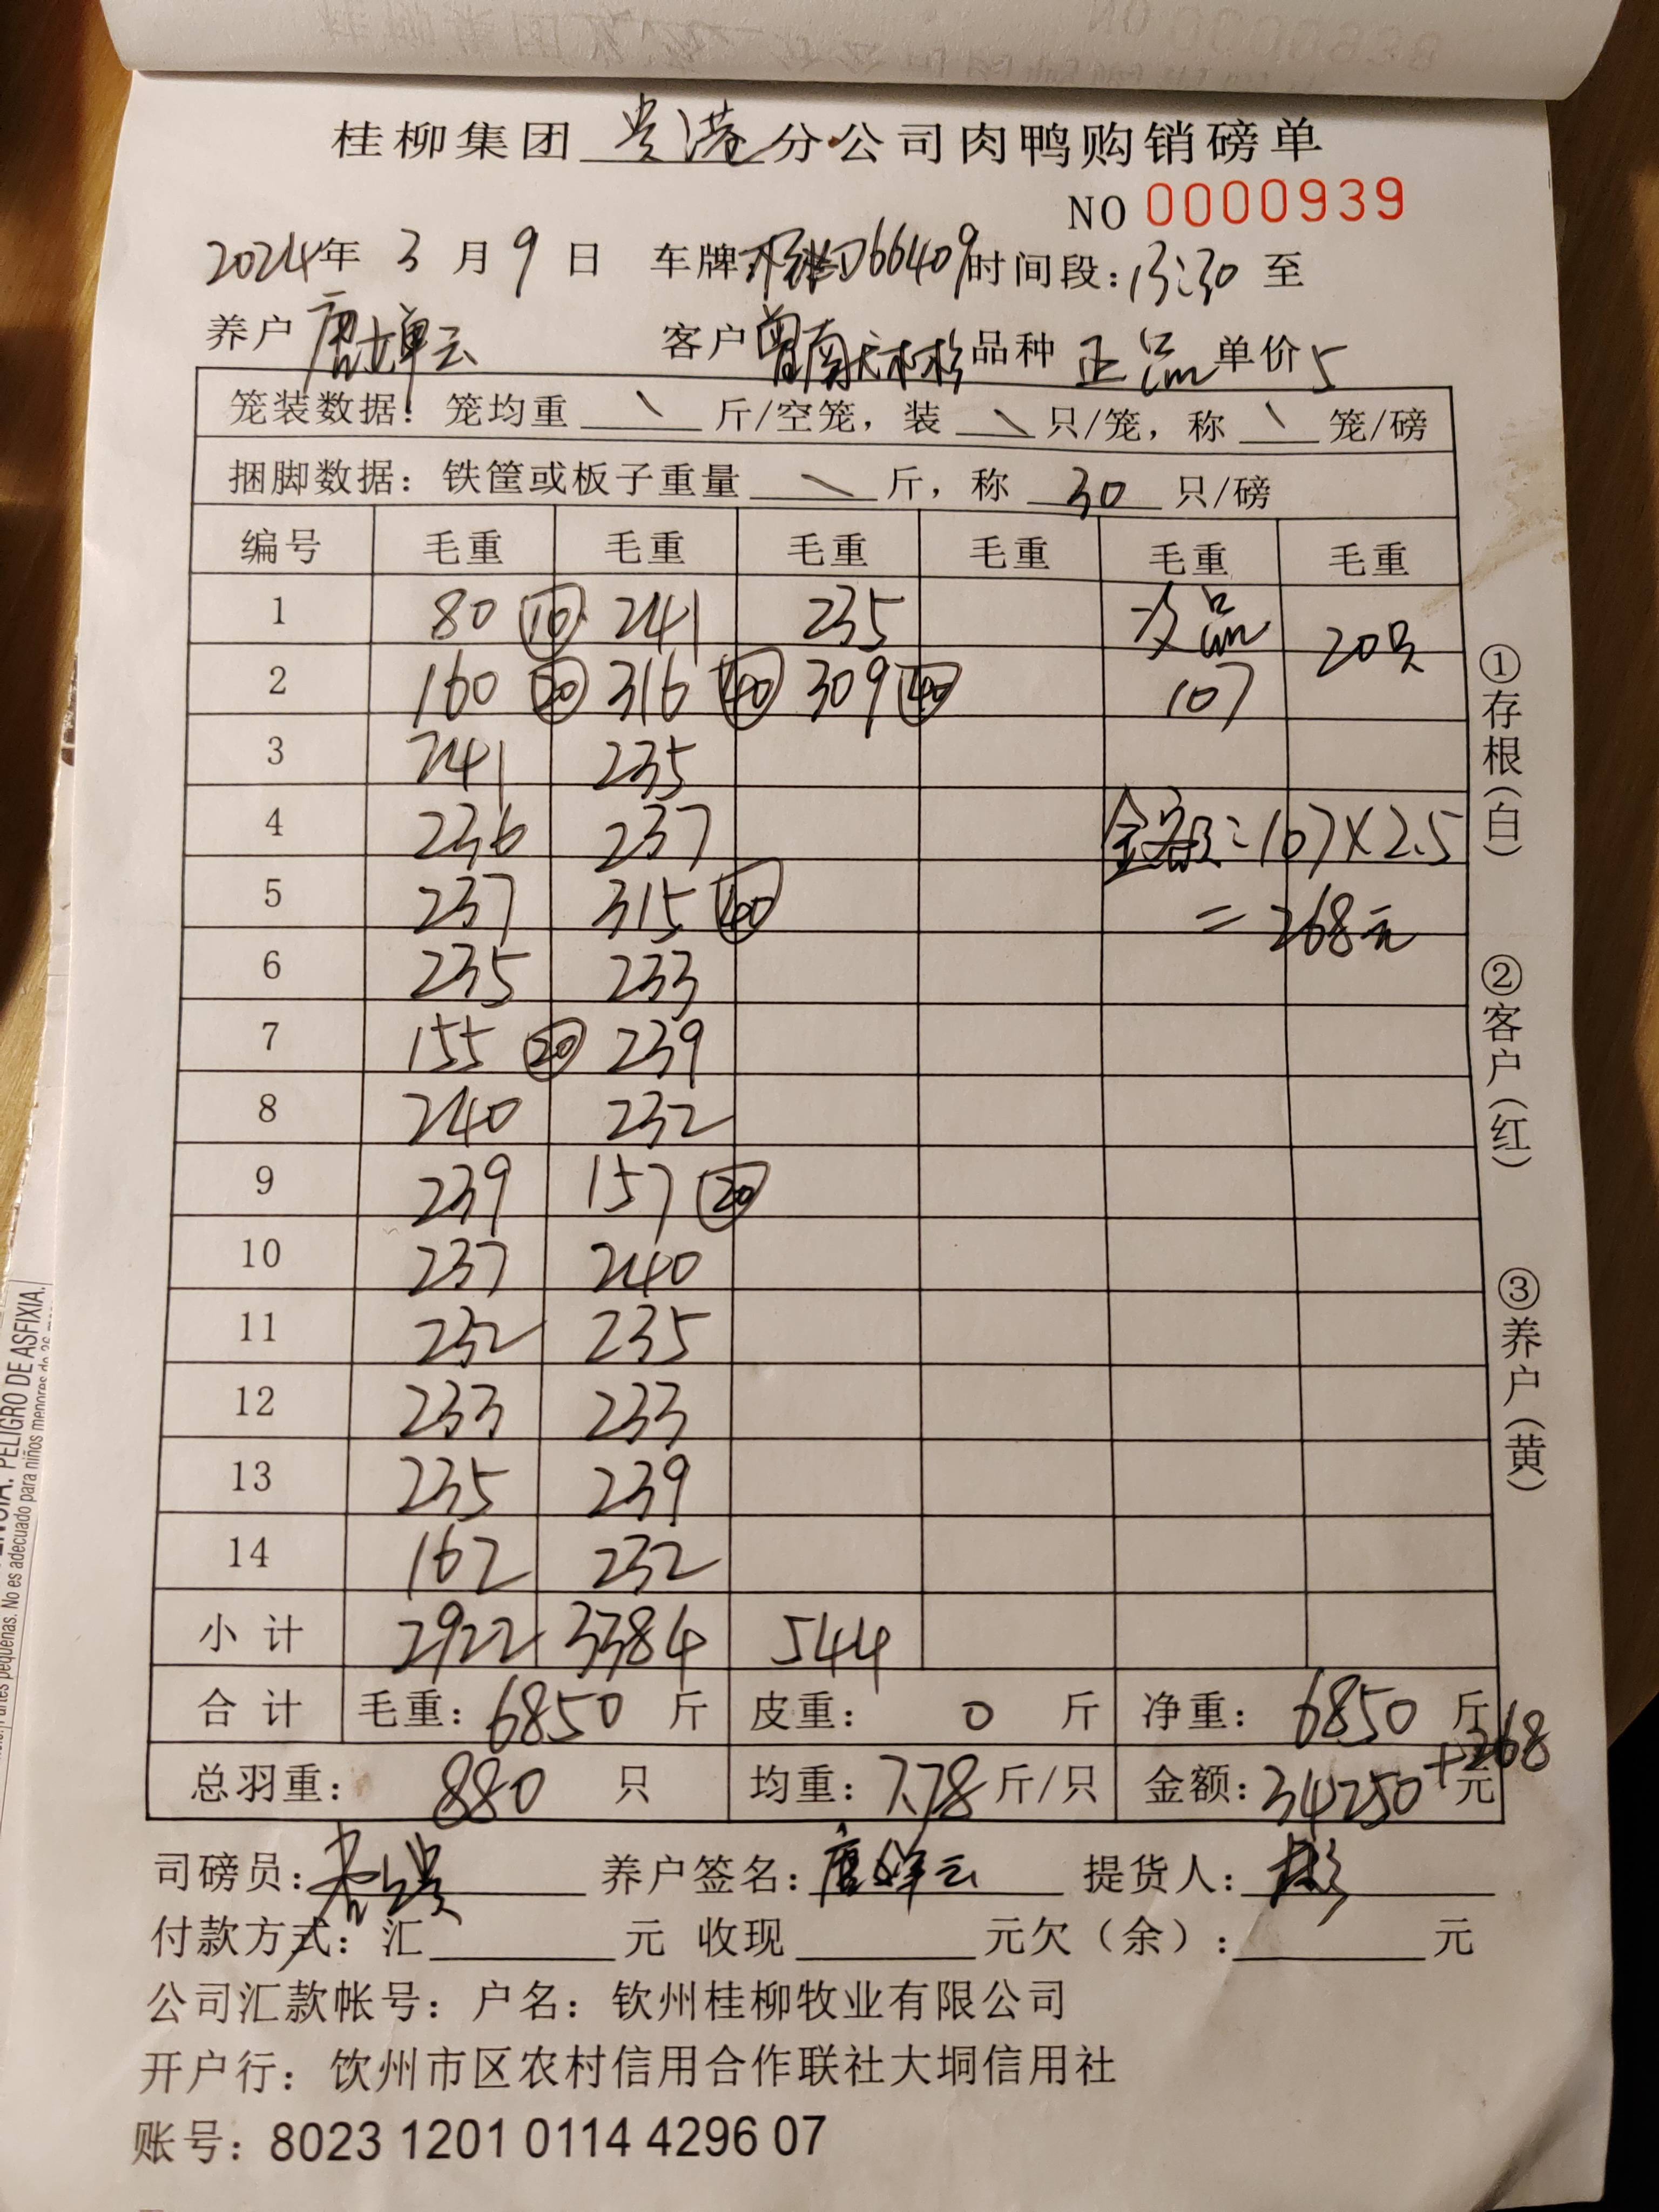 桂柳集团 贵港 分公司肉鸭购销磅单
NO 0000939
2024年 3 月 9 日 车牌 D66409 时间段:13:30 至
养户 唐 云 客户 曾南 品种 正品 单价 5
笼装数据: 笼均重 \ 斤/空笼, 装 \ 只/笼, 称 \ 笼/磅
捆脚数据: 铁筐或板子重量 \ 斤, 称 30 只/磅
编号 毛重 毛重 毛重 毛重 毛重 毛重
1 80 ⑩ 241 235 次品 20只
2 160 ⑳ 316 ㊵ 309 ㊵ 107
3 241 235
4 236 237 金额:107×2.5
5 237 315 ㊵ =268元
6 235 233
7 155 ⑳ 239
8 240 232
9 239 157 ⑳
10 237 240
11 232 235
12 233 233
13 235 239
14 162 232
小 计 2922 3384 544
合 计 毛重: 6850 斤 皮重: 0 斤 净重: 6850 斤
总羽重: 880 只 均重: 7.78 斤/只 金额: 34250+268 元
司磅员: 养户签名: 唐 云 提货人:
付款方式: 汇 元 收现 元欠(余): 元
公司汇款帐号: 户名: 钦州桂柳牧业有限公司
开户行: 饮州市区农村信用合作联社大垌信用社
账号: 8023 1201 0114 4296 07
①存根(白)
②客户(红)
③养户(黄)
PELIGRO DE ASFIXIA.
No es adecuado para niños menores de 36